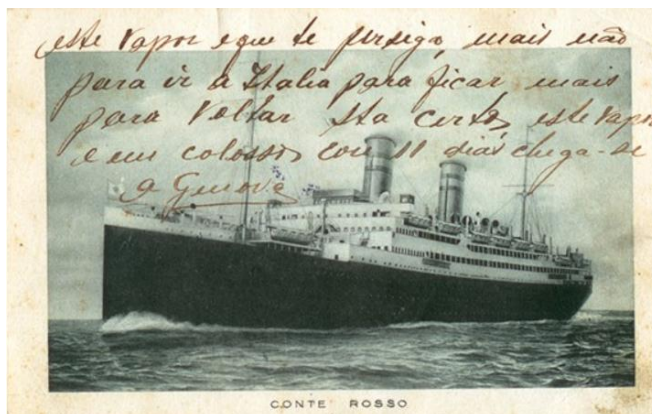 este vapor e que te persigo, mais não
para ir a Italia para ficar, mais
para voltar sta certo, este vapor
e um colosso con 11 dias chega-se
a Genova
CONTE ROSSO